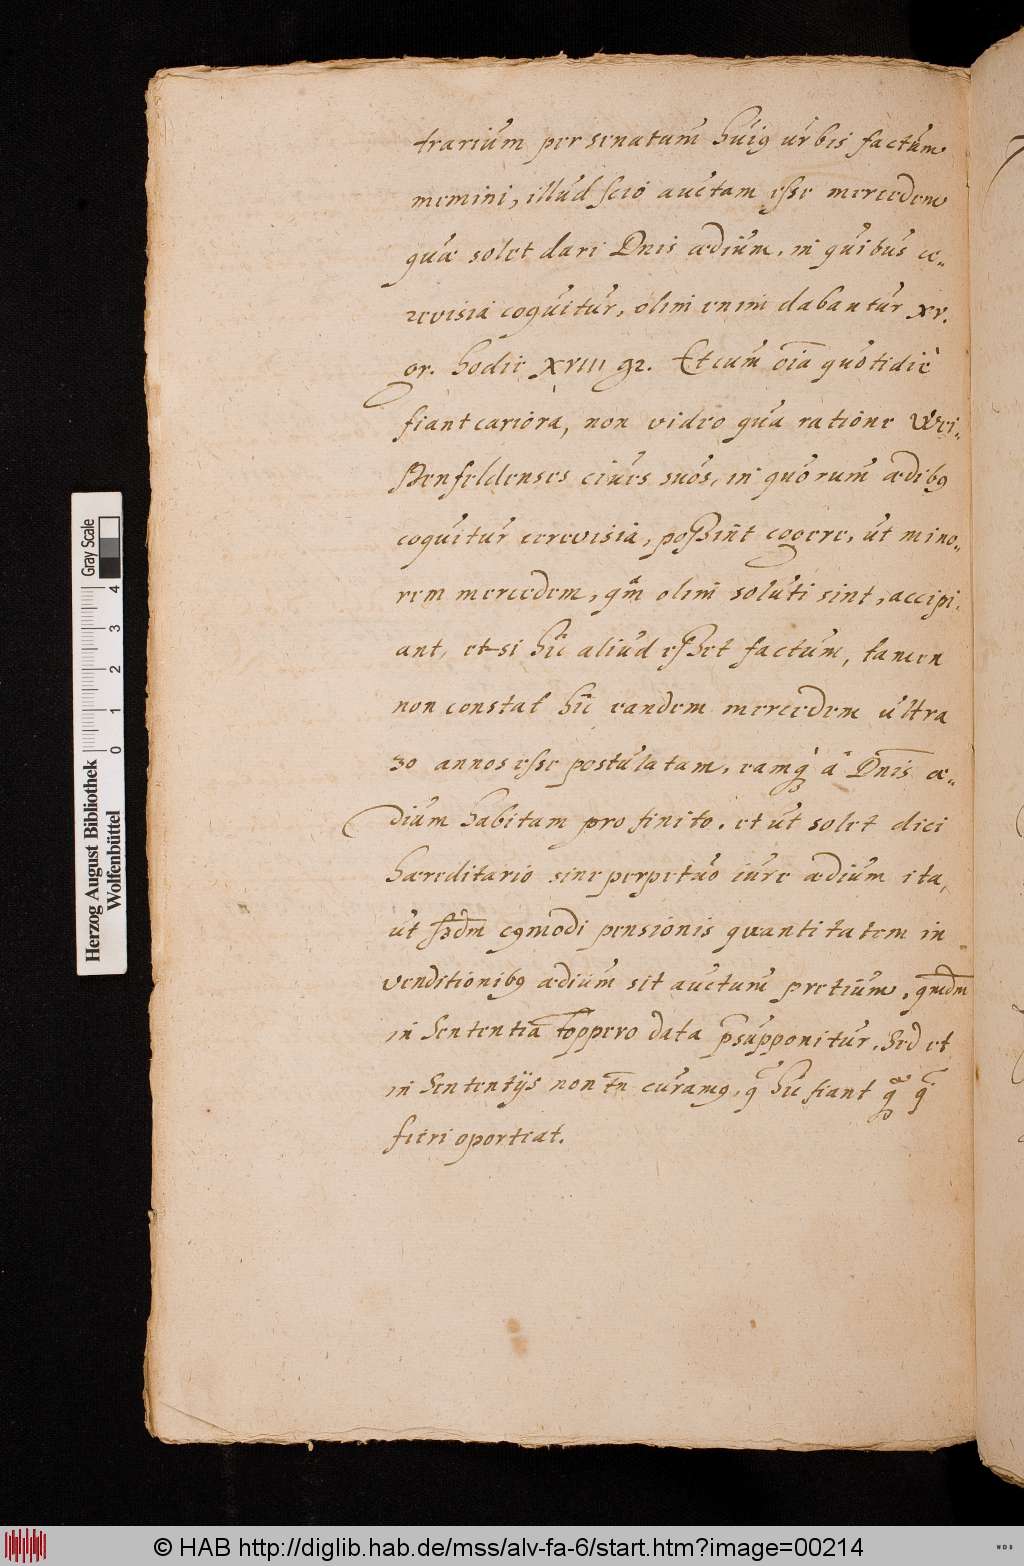 trarium per senatum huiꝰ urbis factum
memini, illud scio auctam esse mercedem
quæ solet dari Dnis ædium, in quibus ce-
revisia coquitur, olim enim dabantur xv.
gr. hodie XVIII gr. Et cum oīa quotidiè
fiant cariora, non video qua ratione Wei-
ssenfeldenses cives suos, in quorum ædibꝰ
coquitur cerevisia, possint cogere, ut mino-
rem mercedem, qm̄ olim soluti sint, accipi-
ant, etsi hîc aliud esset factum, tamen
non constat hîc eandem mercedem ultra
30 annos esse postulatam, eamq; à Dn̄is æ-
dium habitam pro finito, et ut solet dici
hæreditario sine perpetuo iure ædium ita,
ut scdm eꝰmodi pensionis quantitatem in
venditionibꝰ ædium sit auctum pretium, qmdm
in sententia data p̄supponitur. Sed et
in sententijs non tn̄ curamꝰ, q hîc fiant q; q
fieri oporteat.
Gray Scale
4 3 2 1 0
Herzog August Bibliothek
Wolfenbüttel
© HAB http://diglib.hab.de/mss/alv-fa-6/start.htm?image=00214
WDB